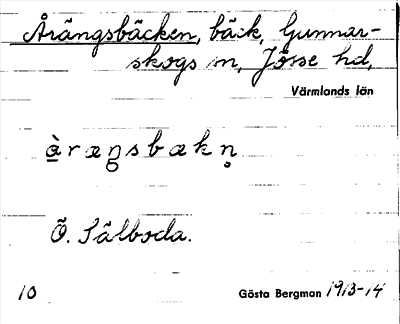 Årängsbäcken, bäck, Gunnar-
skogs sn, Jösse hd,
Värmlands län
àræŋsbækn̥
Ö. Sälboda.
10 Gösta Bergman 1913-14